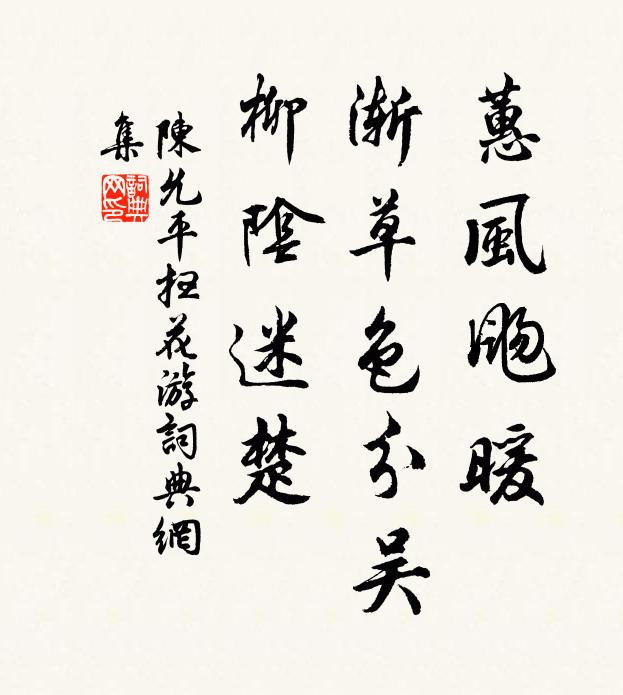 蕙風颺暖
漸草色分吴
柳陰迷楚
陳允平掃花游詞典網
集
詞典
网印